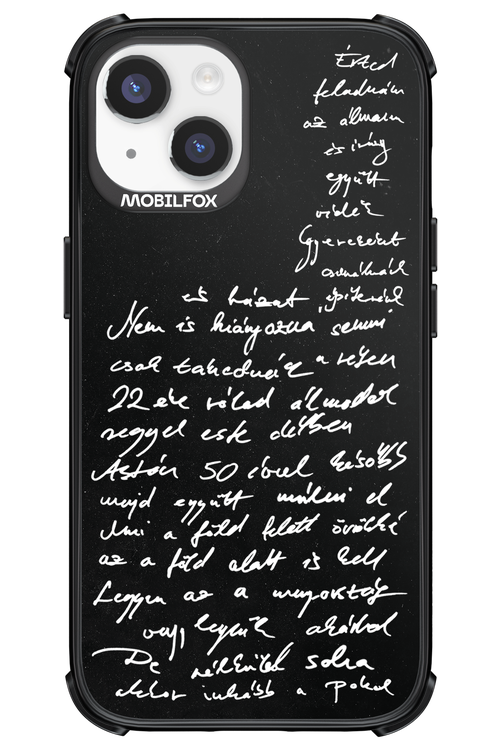 MOBILFOX
Érted
feladnám
az álmaim
és így
együtt
veled
Gyerekeket
csinálnánk
és házat építenénk
Nem is hiányozna semmi
csak takednéz a vesen
22 éve rólad álmodok
reggel este délben
Aztán 50 évvel később
majd együtt múlni el
Ami a föld felett örökké
az a föld alatt is kell
Legyen az a mennyország
vagy legyünk akárhol
De nélküled soha
akkor inkább a pokol